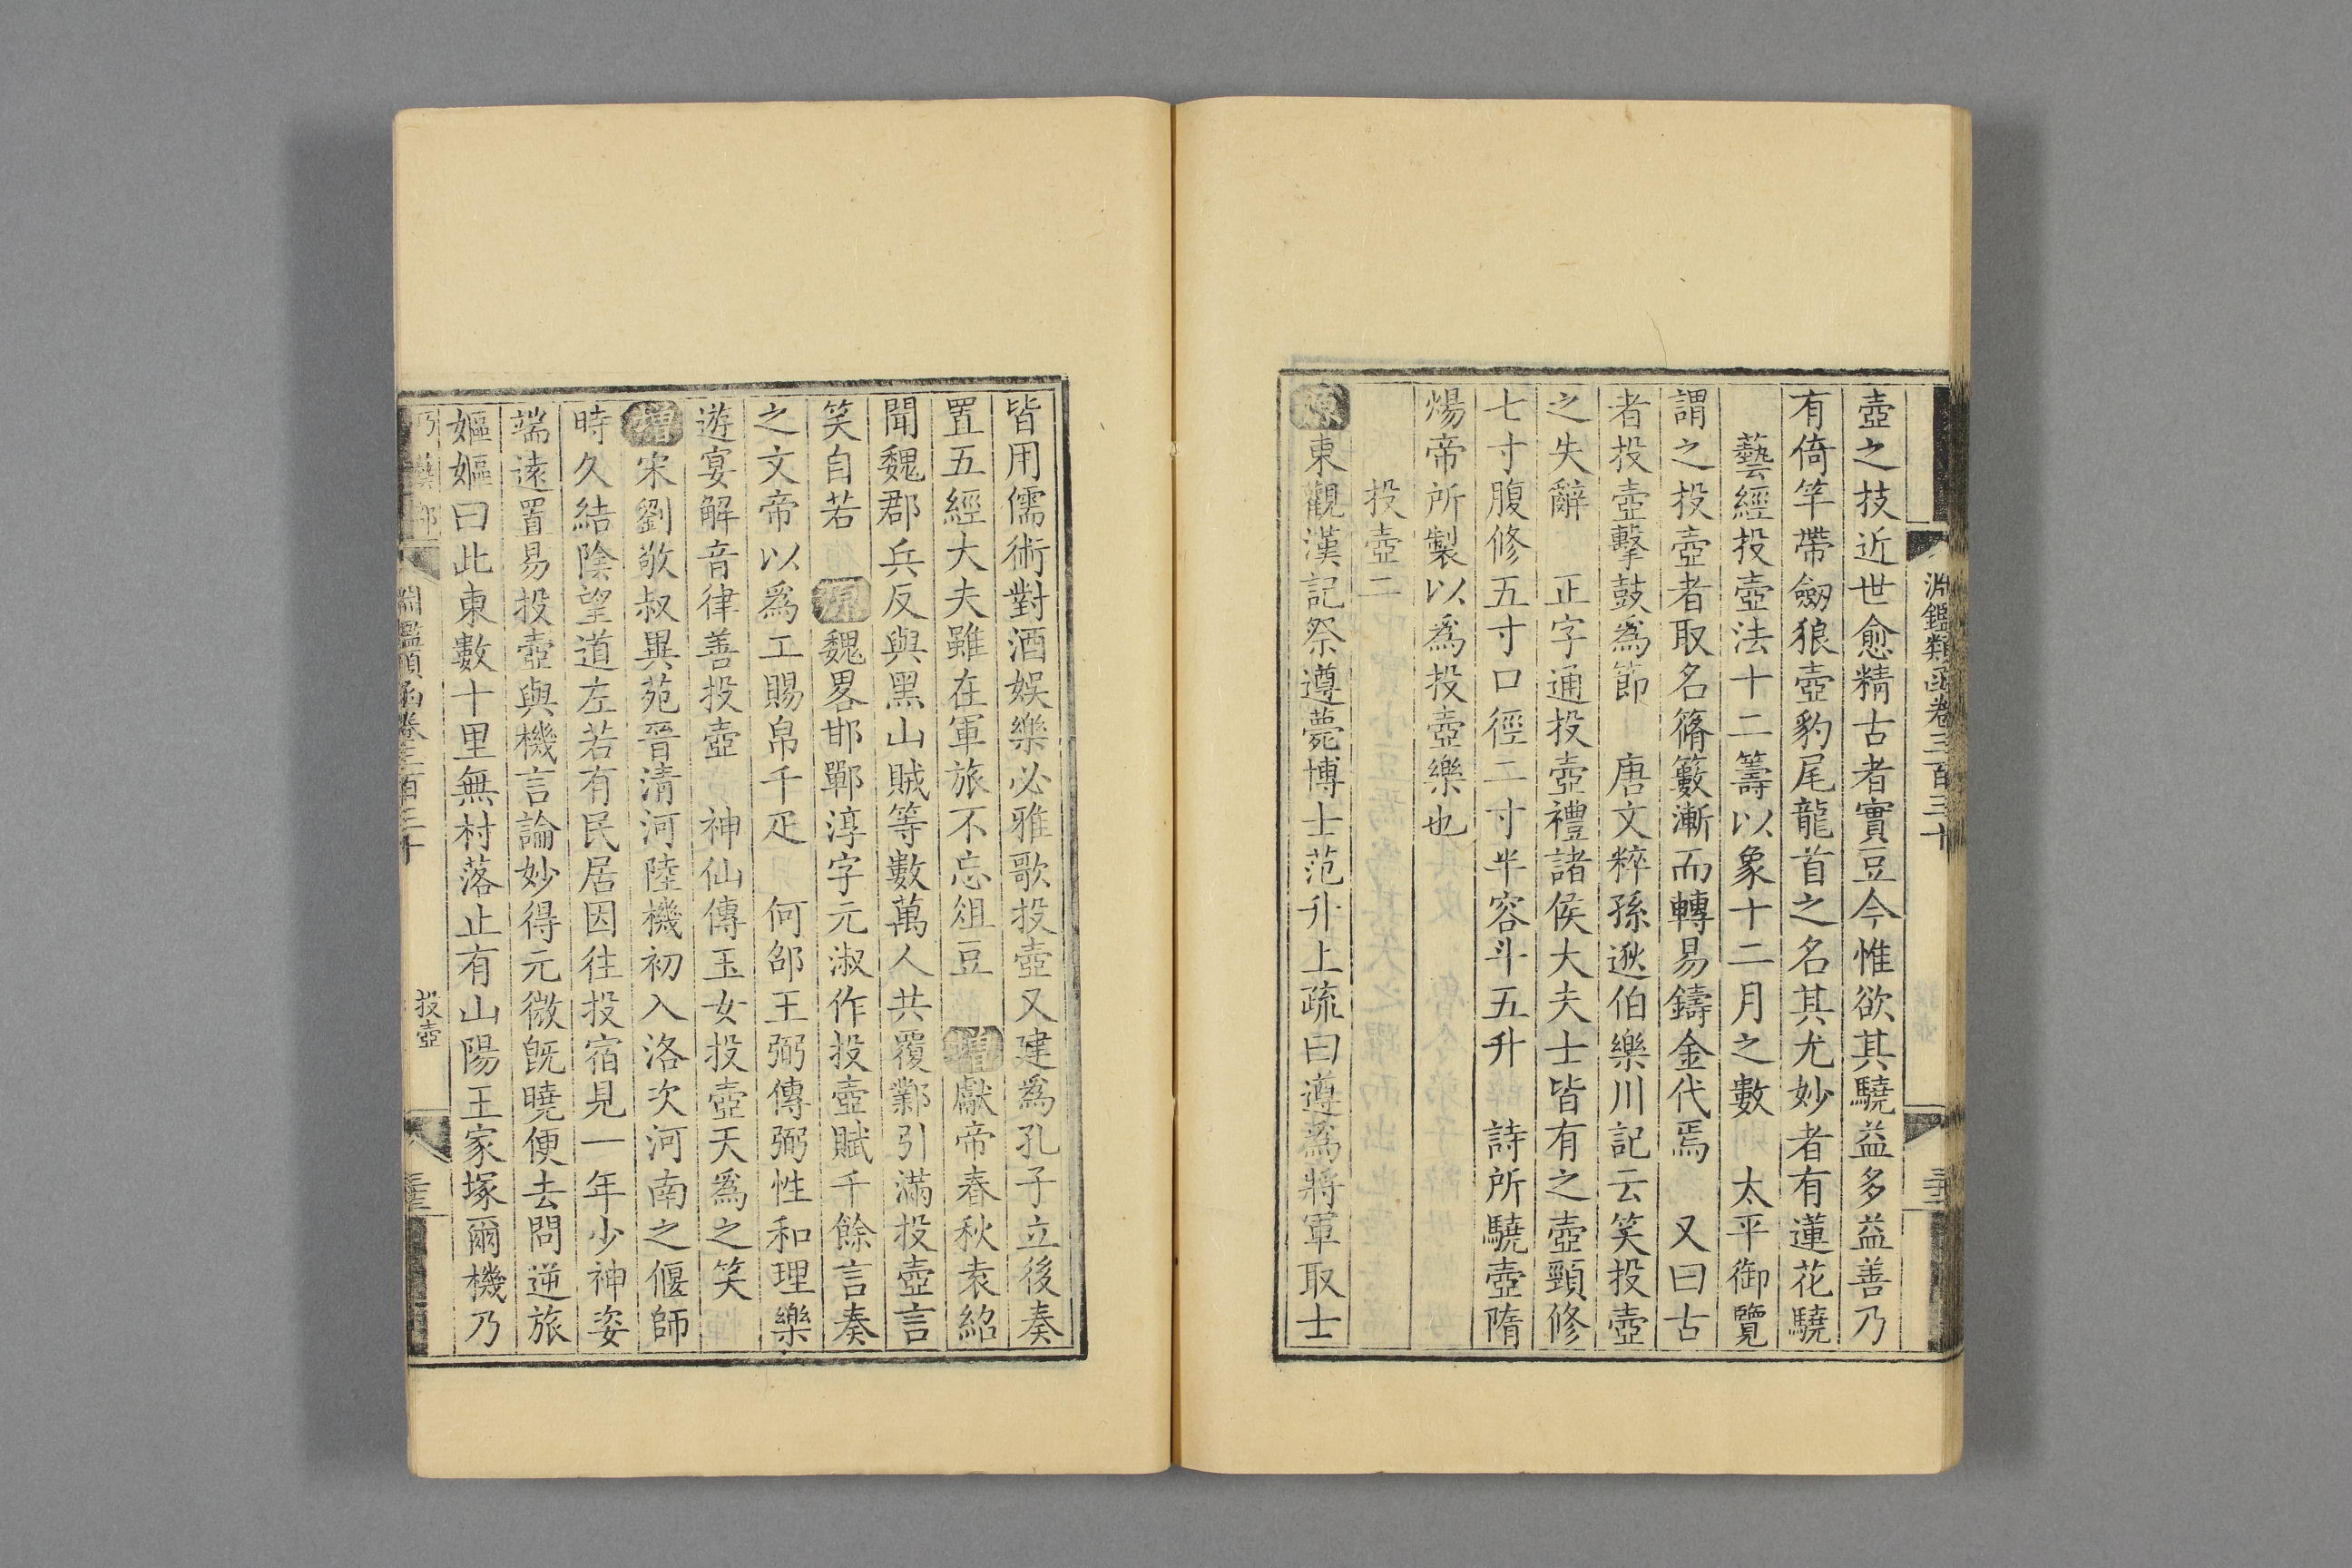 淵鑑類函卷三百三十
三十二
壺之技近世愈精古者實豆今惟欲其驍益多益善乃
有倚竿帶劒狼壺豹尾龍首之名其尤妙者有蓮花驍
藝經投壺法十二籌以象十二月之數 太平御覽
謂之投壺者取名脩籔漸而轉易鑄金代焉 又曰古
者投壺擊鼓爲節 唐文粹孫逖伯樂川記云笑投壺
之失辭 正字通投壺禮諸侯大夫士皆有之壺頸修
七寸腹修五寸口徑二寸半容斗五升 詩所驍壺隋
煬帝所製以爲投壺樂也
投壺二
原東觀漢記祭遵薨博士范升上疏曰遵爲將軍取士
皆用儒術對酒娱樂必雅歌投壺又建爲孔子立後奏
置五經大夫雖在軍旅不忘俎豆 增獻帝春秋袁紹
聞魏郡兵反與黑山賊等數萬人共覆鄴引滿投壺言
笑自若 原魏畧邯鄲淳字元淑作投壺賦千餘言奏
之文帝以爲工賜帛千疋 何邵王弼傳弼性和理樂
遊宴解音律善投壺 神仙傳玉女投壺天爲之笑
增宋劉敬叔異苑晉清河陸機初入洛次河南之偃師
時久結陰望道左若有民居因往投宿見一年少神姿
端遠置易投壺與機言論妙得元微旣曉便去問逆旅
嫗嫗曰此東數十里無村落止有山陽王家塚爾機乃
淵鑑類函卷三百三十
投壺